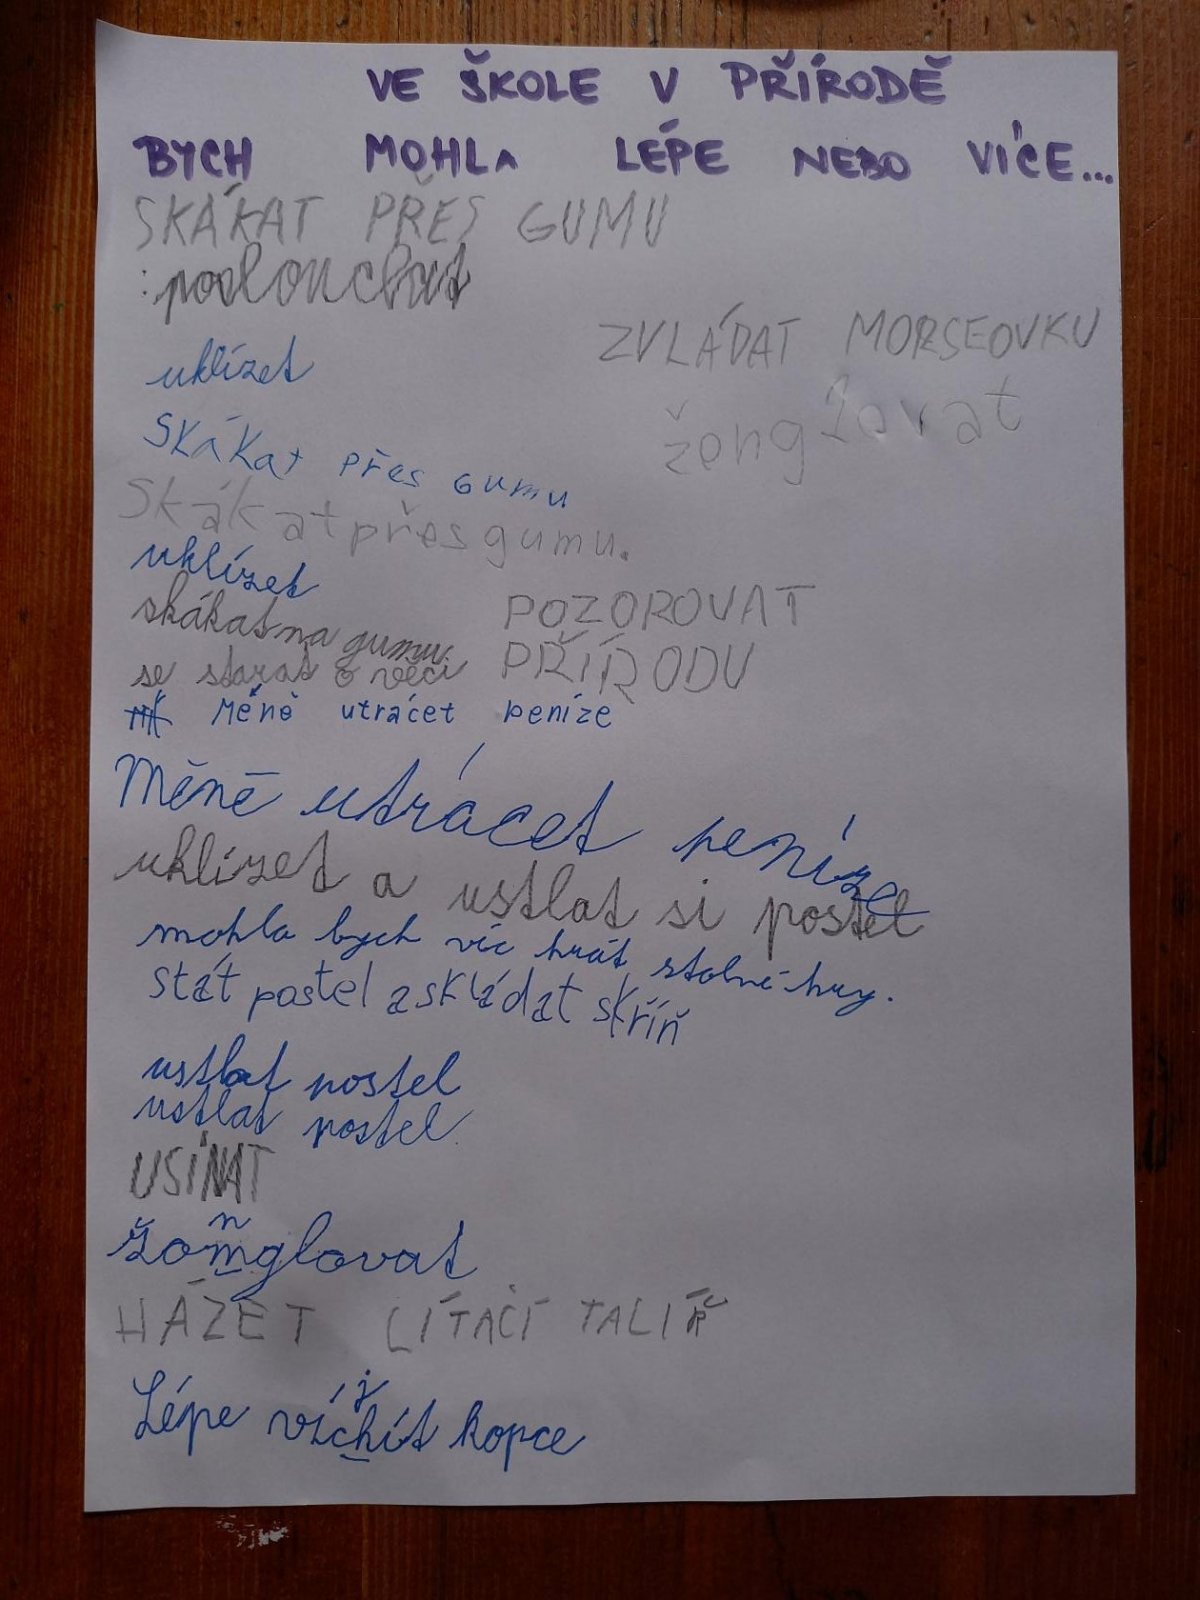 VE ŠKOLE V PŘÍRODĚ
BYCH MOHLA LÉPE NEBO VÍCE...
SKÁKAT PŘES GUMU
poslouchat
ZVLÁDAT MORSEOVKU
uklízet
žonglovat
Skákat přes gumu
Skákat přes gumu.
uklízet
skákat na gumu
POZOROVAT
PŘÍRODU
se starat o věci
Méně utrácet peníze
Méně utrácet peníze
uklízet a ustlat si postel
mohla bych víc hrát stolní hry.
stát postel a skládat skříň
ustlat postel
ustlat postel.
USÍNAT
n
žomglovat
HÁZET LÍTACÍ TALÍŘ
j
Lépe víchít kopce